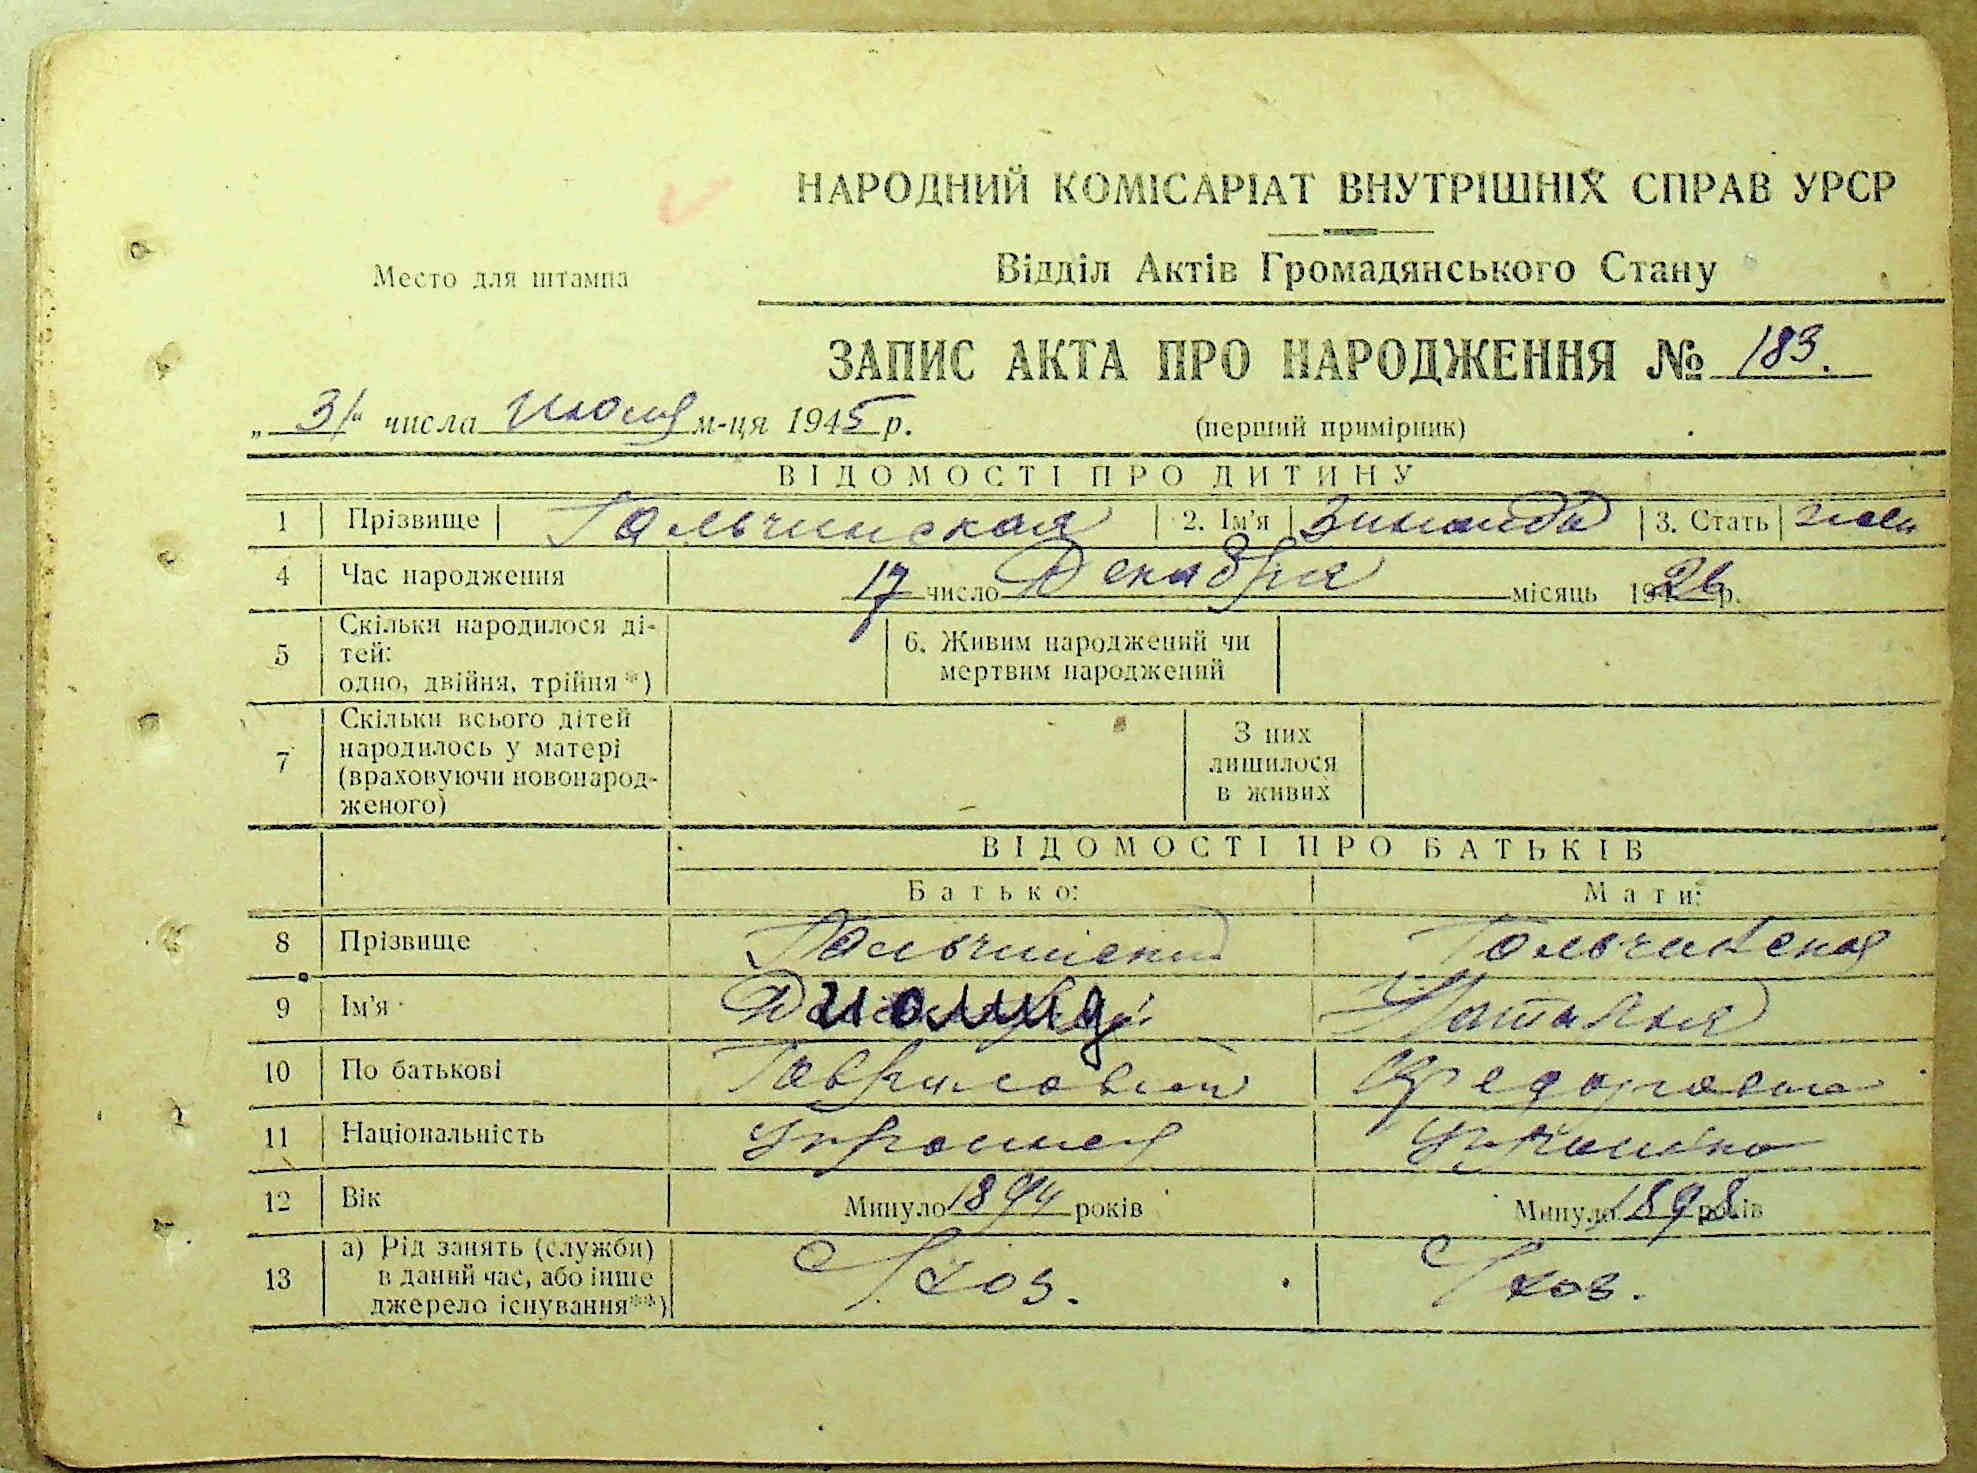 НАРОДНИЙ КОМІСАРІАТ ВНУТРІШНІХ СПРАВ УРСР
Место для штампа
Відділ Актів Громадянського Стану
ЗАПИС АКТА ПРО НАРОДЖЕННЯ № 183.
„ 31 " числа Июля м-ця 1945 р. (перший примірник)
ВІДОМОСТІ ПРО ДИТИНУ
1 Прізвище Гальчинская 2. Ім'я Зинаида 3. Стать жен
4 Час народження 17 число Декабря місяць 1926 р.
5 Скільки народилося ді-
тей:
одно, двійня, трійня *)
6. Живим народжений чи
мертвим народжений
7 Скільки всього дітей
народилось у матері
(враховуючи новонарод-
женого)
З них
лишилося
в живих
ВІДОМОСТІ ПРО БАТЬКІВ
Батько: Мати:
8 Прізвище Гальчинский Гальчинская
9 Ім'я Наталья
10 По батькові Гаврилович Федоровна
11 Національність Украинец Украинка
12 Вік Минуло 1894 років Минуло 1898 років
13 а) Рід занять (служби)
в даний час, або інше
джерело існування **)
С/хоз. С/хоз.